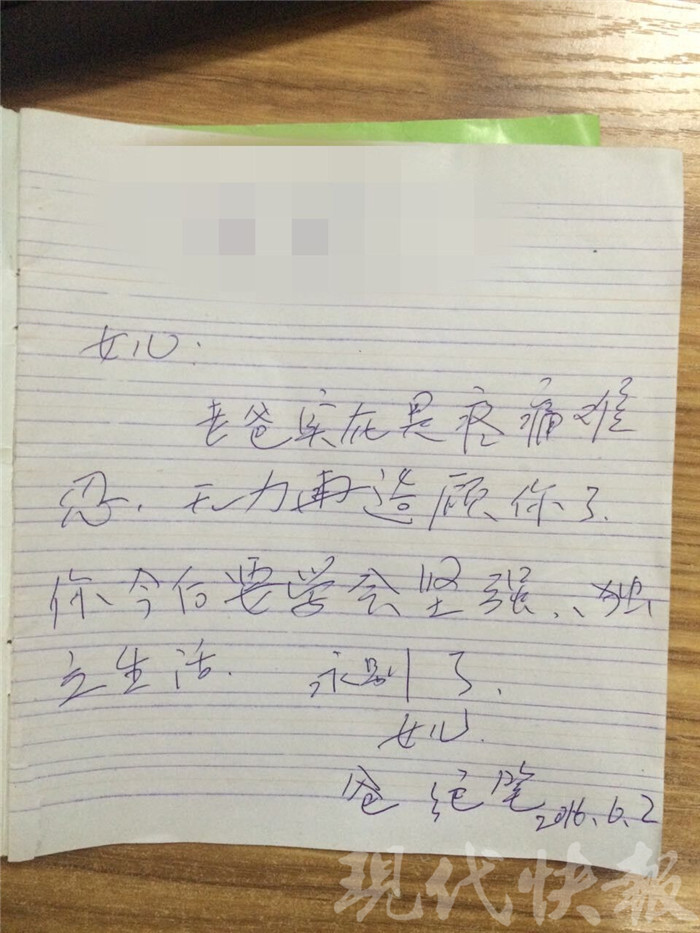 女儿:
老爸实在是疼痛难
忍、无力再造顾你了.
你今后要学会坚强、独
立生活. 永别了.
女儿.
爸 绝笔 2016.6.2
现代快报